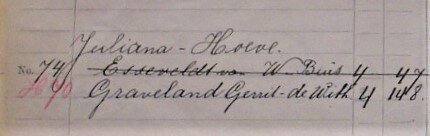 Juliana-Hoeve.
No. 74 Esseveldt van W Buis 4 47
H 90 Graveland Gerrit-de With 4 148